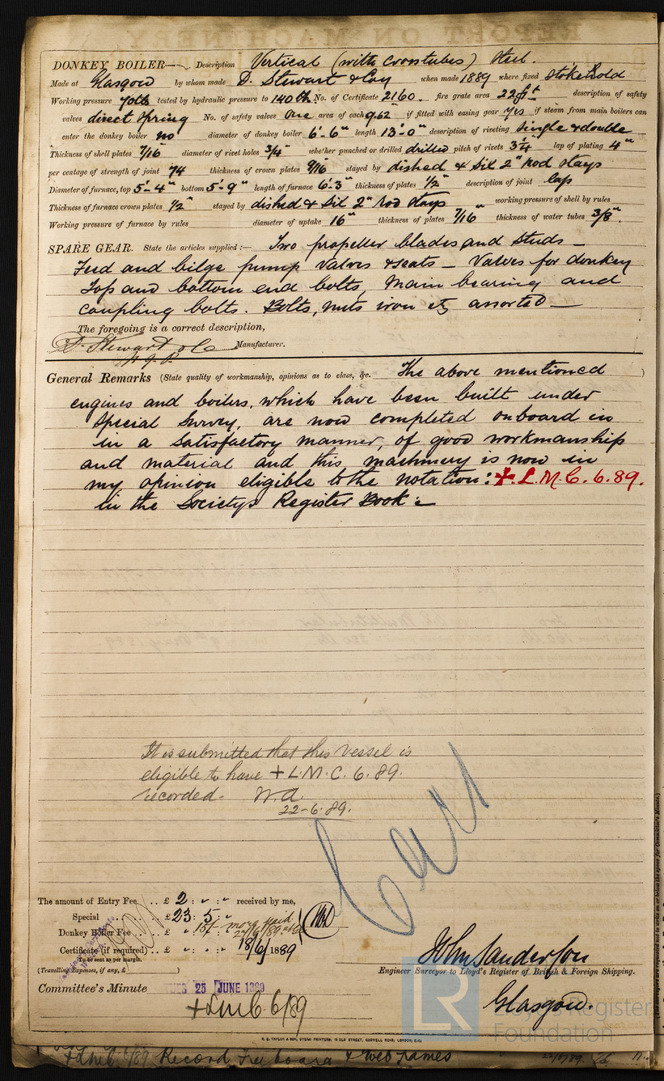 DONKEY BOILER— Description Vertical (with crosstubes) Steel.
Made at Glasgow by whom made D. Stewart & Coy when made 1889 where fixed Stokehold
Working pressure 70lb tested by hydraulic pressure to 140lb No. of Certificate 2160. fire grate area 22 ft description of safety
valves direct spring No. of safety valves One area of each 9.62 if fitted with easing gear yes if steam from main boilers can
enter the donkey boiler no diameter of donkey boiler 6'-6" length 13'-0" description of riveting single & double
Thickness of shell plates 7/16 diameter of rivet holes 3/4" whether punched or drilled drilled pitch of rivets 3 1/4 lap of plating 4"
per centage of strength of joint 74 thickness of crown plates 9/16 stayed by dished & six 2" rod stays
Diameter of furnace, top 5'-4" bottom 5'-9" length of furnace 6'-3" thickness of plates 1/2" description of joint lap
Thickness of furnace crown plates 1/2" stayed by dished & six 2" rod stays working pressure of shell by rules
Working pressure of furnace by rules diameter of uptake 16" thickness of plates 7/16" thickness of water tubes 3/8"
SPARE GEAR. State the articles supplied:— Two propeller blades and studs —
Feed and bilge pump valves & seats — Valves for donkey
Top and bottom end bolts, main bearing and
coupling bolts. Bolts, nuts iron &c assorted —
The foregoing is a correct description,
D. Stewart & Co Manufacturer.
General Remarks (State quality of workmanship, opinions as to class, &c. The above mentioned
engines and boilers, which have been built under
Special Survey, are now completed onboard in
in a satisfactory manner, of good workmanship
and material and this machinery is now in
my opinion eligible to the notation: +. L.M.C. 6.89.
in the Society's Register Book :-
It is submitted that this vessel is
eligible to have + L.M.C. 6.89.
recorded. W.A
22-6-89.
The amount of Entry Fee .. £ 2 : " : " received by me,
Special .. £ 23 : 5 : "
Donkey Boiler Fee .. £
Certificate (if required) .. £ " : " : " 18/6/1889
to be sent as per margin.
(Travelling Expenses, if any, £ )
John Sanderson
Engineer Surveyor to Lloyd's Register of British & Foreign Shipping.
Committee's Minute TUES 25 JUNE 1889
Glasgow.
+ LMC 6/89
LR
Register
Foundation